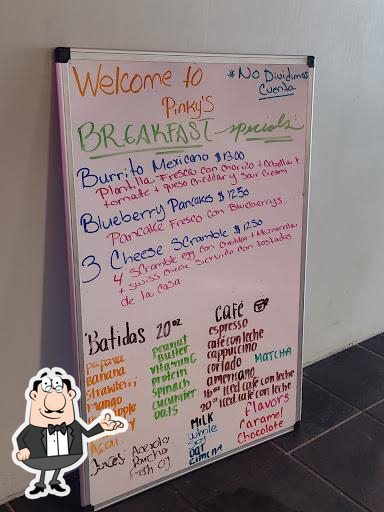 Welcome to
Pinky's
* No Dividimos
Cuenta
BREAKFAST specials
Burrito Mexicano $13.00
Plantilla Fresca con chorizo + cebolla +
tomate + queso cheddar y Sour Cream
Blueberry Pancakes $12.50
Pancake Fresco con Blueberrys...
3 Cheese Scramble $12.50
4 Scramble egg con cheddar + Mozzarella
+ swiss cheese servido con tostadas
de la casa
Batidas 20 oz
papaya
Banana
Strawberri
mango
Acai
peanut
Butter
vitamin C
protein
spinach
cucumber
oats
Juices Acerola
Parcha
Fresh OJ
café
espresso
café con leche
cappuccino
cortado
MATCHA
americano
16oz iced cafe con leche
20oz iced cafe con leche
MILK
whole
soy
oat
almond
flavors
Caramel
Chocolate